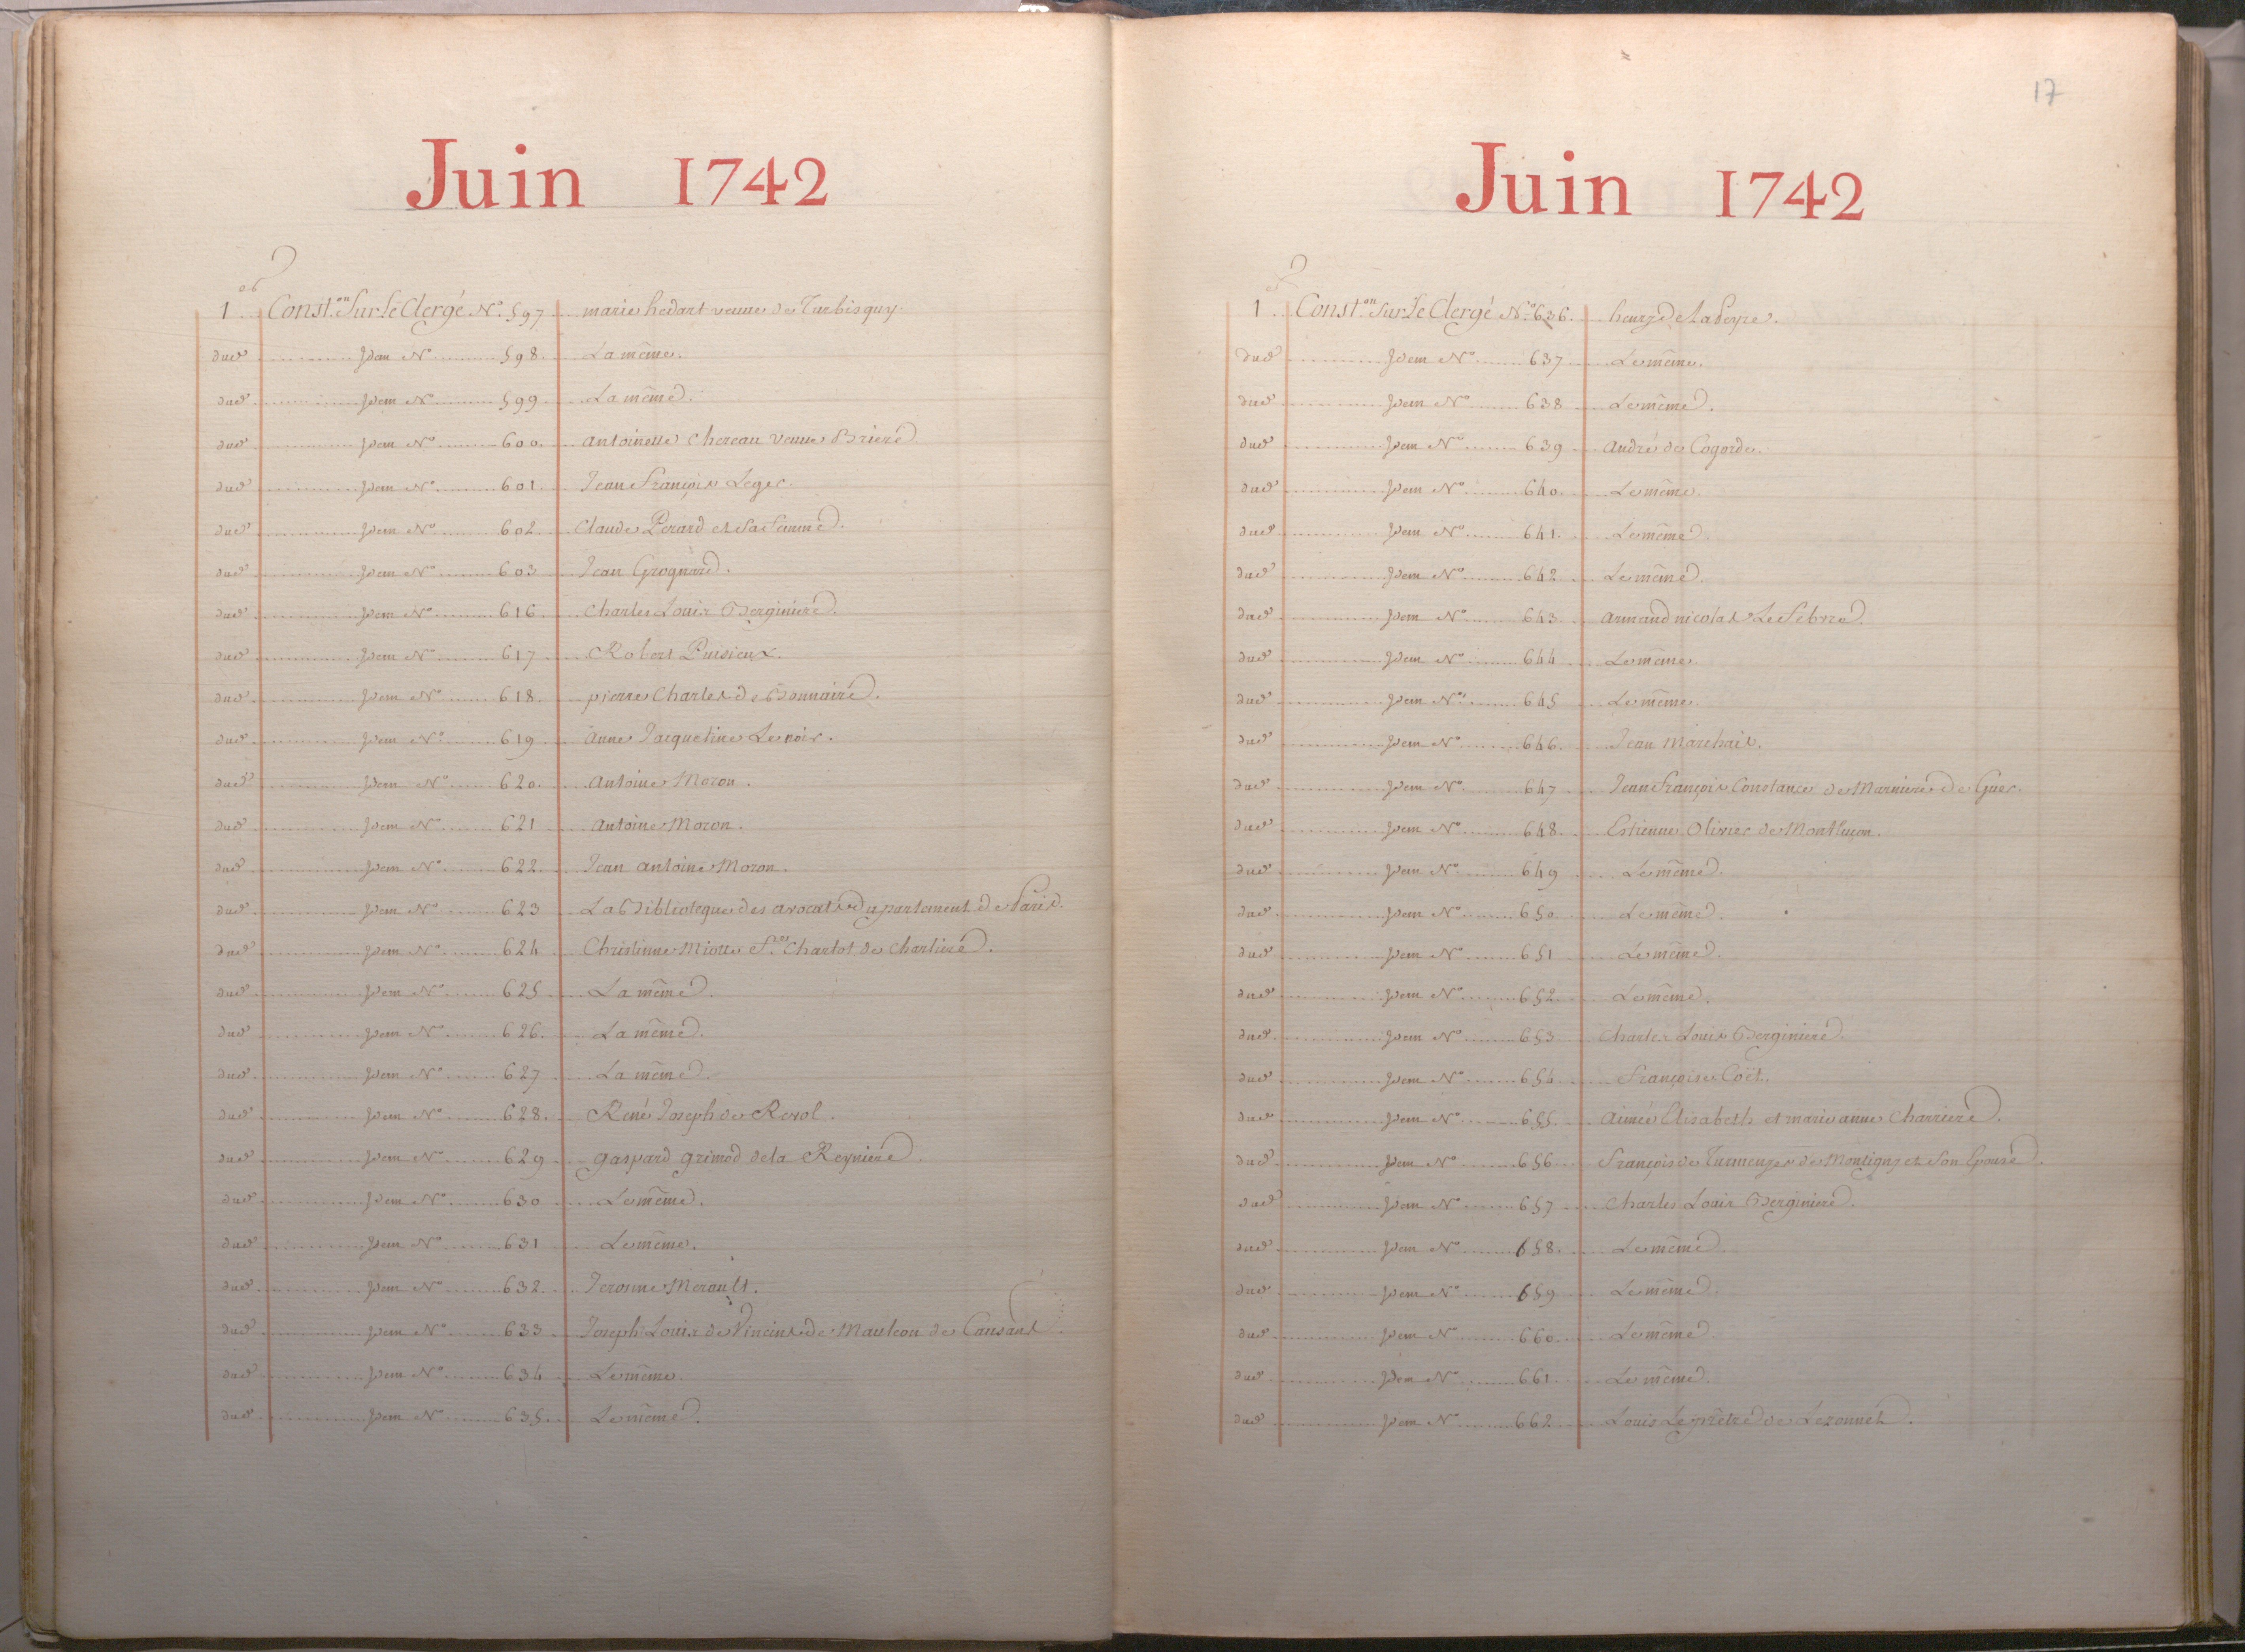 Juin 1742
1.er Const.on Sur Le Clergé N.o 597 marie hedart veuve de Turbisquy.
dud Idem No 598. La même.
dud Idem No 599 La même.
dud Idem No 600. antoinette Chereau veuve Briere
dud Idem No 601. Jean François Leger.
dud Idem No 602. Claude Perard et Sa femme.
dud Idem No 603 Jean Grognard.
dud Idem No 616 Charles Louis Berginiere.
dud Idem No 617 Robert Puisieux.
dud Idem No 618. pierre Charles de Bonnaire.
dud Idem No 619 Anne Jacqueline Lenoir.
dud Idem No 620. Antoine Moron.
dud Idem No 621 Antoine Moron.
dud Idem No 622 Jean antoine Moron.
dud Idem No 623 La Biblioteque des avocats du parlement de Paris.
dud Idem No 624 Christinne Miotte Charlot de Charliere.
dud Idem No 625 La même.
dud Idem No 626. La même.
dud Idem No 627 La même.
dud Idem No 628. René Joseph de Revol.
dud Idem No 629 gaspard grimod de la Reyniere.
dud Idem No 630 Le même.
dud Idem No 631 Le même.
dud Idem No 632. Jerosme Merault.
dud Idem No 633 Joseph Louis de Vincent de Mauleon de Causans.
dud Idem No 634 Le même.
dud Idem No 635. Le même.
17
Juin 1742
1. Const.on Sur Le Clergé No 636. henry de Lapeyre.
dud Idem No 637 Le même.
dud Idem No 638 Le même.
dud Idem No 639 André de Cogorde.
dud Idem No 640. Le même.
dud Idem No 641. Le même.
dud Idem No 642 Le même.
dud Idem No 643. armand nicolas Lefebvre.
dud Idem No 644 Le même.
dud Idem No 645 Le même.
dud Idem No 646. Jean Marchais.
dud Idem No 647 Jean François Constance de Marniere de Guer.
dud Idem No 648. Estienne Olivier de Montluçon.
dud Idem No 649 Le même.
dud Idem No 650. Le même.
dud Idem No 651 Le même.
dud Idem No 652. Le même.
dud Idem No 653 Charles Louis Berginiere.
dud Idem No 654 Françoise Coët.
dud Idem No 655. Aimée Elisabeth et marie anne Charriere.
dud Idem No 656 François de Turmenyes de Montigny et Son Epouse.
dud Idem No 657 Charles Louis Berginiere.
dud Idem No 658. Le même.
dud Idem No 659 Le même.
dud Idem No 660. Le même.
dud Idem No 661. Le même.
dud Idem No 662 Louis Leprêtre de Lezonnet.